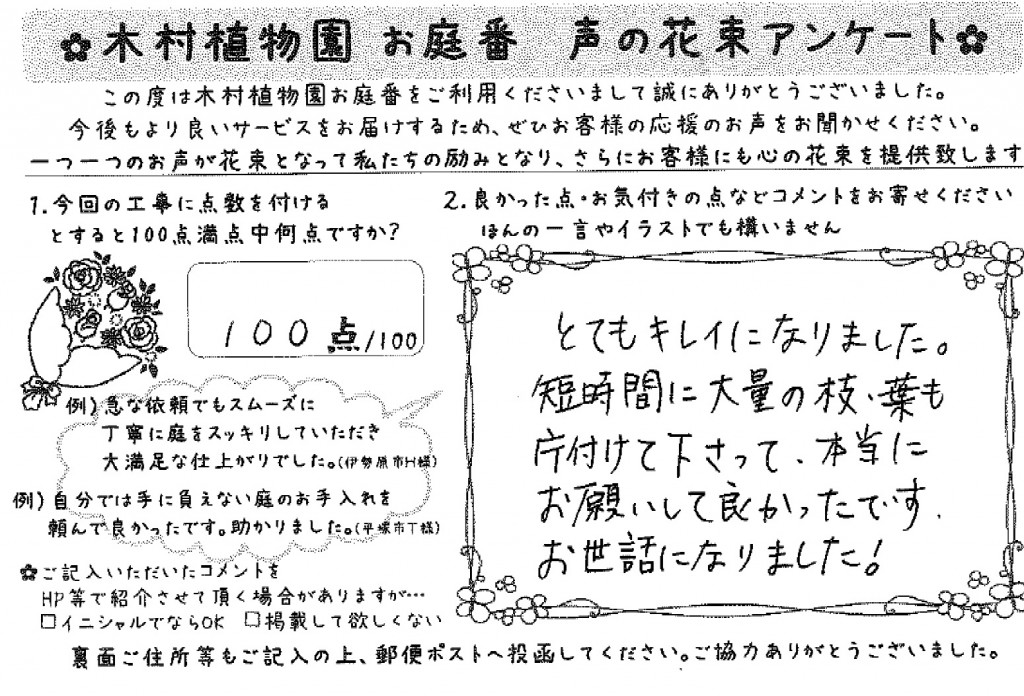 ✿木村植物園 お庭番 声の花束アンケート✿
この度は木村植物園お庭番をご利用くださいまして誠にありがとうございました。
今後もより良いサービスをお届けするため、ぜひお客様の応援のお声をお聞かせください。
一つ一つのお声が花束となって私たちの励みとなり、さらにお客様にも心の花束を提供致します
1.今回の工事に点数を付ける
とすると100点満点中何点ですか?
100点/100
例)急な依頼でもスムーズに
丁寧に庭をスッキリしていただき
大満足な仕上がりでした。(伊勢原市H様)
例)自分では手に負えない庭のお手入れを
頼んで良かったです。助かりました。(平塚市T様)
✿ご記入いただいたコメントを
HP等で紹介させて頂く場合がありますが…
□イニシャルでならOK □掲載して欲しくない
2.良かった点・お気付きの点などコメントをお寄せください
ほんの一言やイラストでも構いません
とてもキレイになりました。
短時間に大量の枝、葉も
片付けて下さって、本当に
お願いして良かったです、
お世話になりました!
裏面ご住所等もご記入の上、郵便ポストへ投函してください。ご協力ありがとうございました。